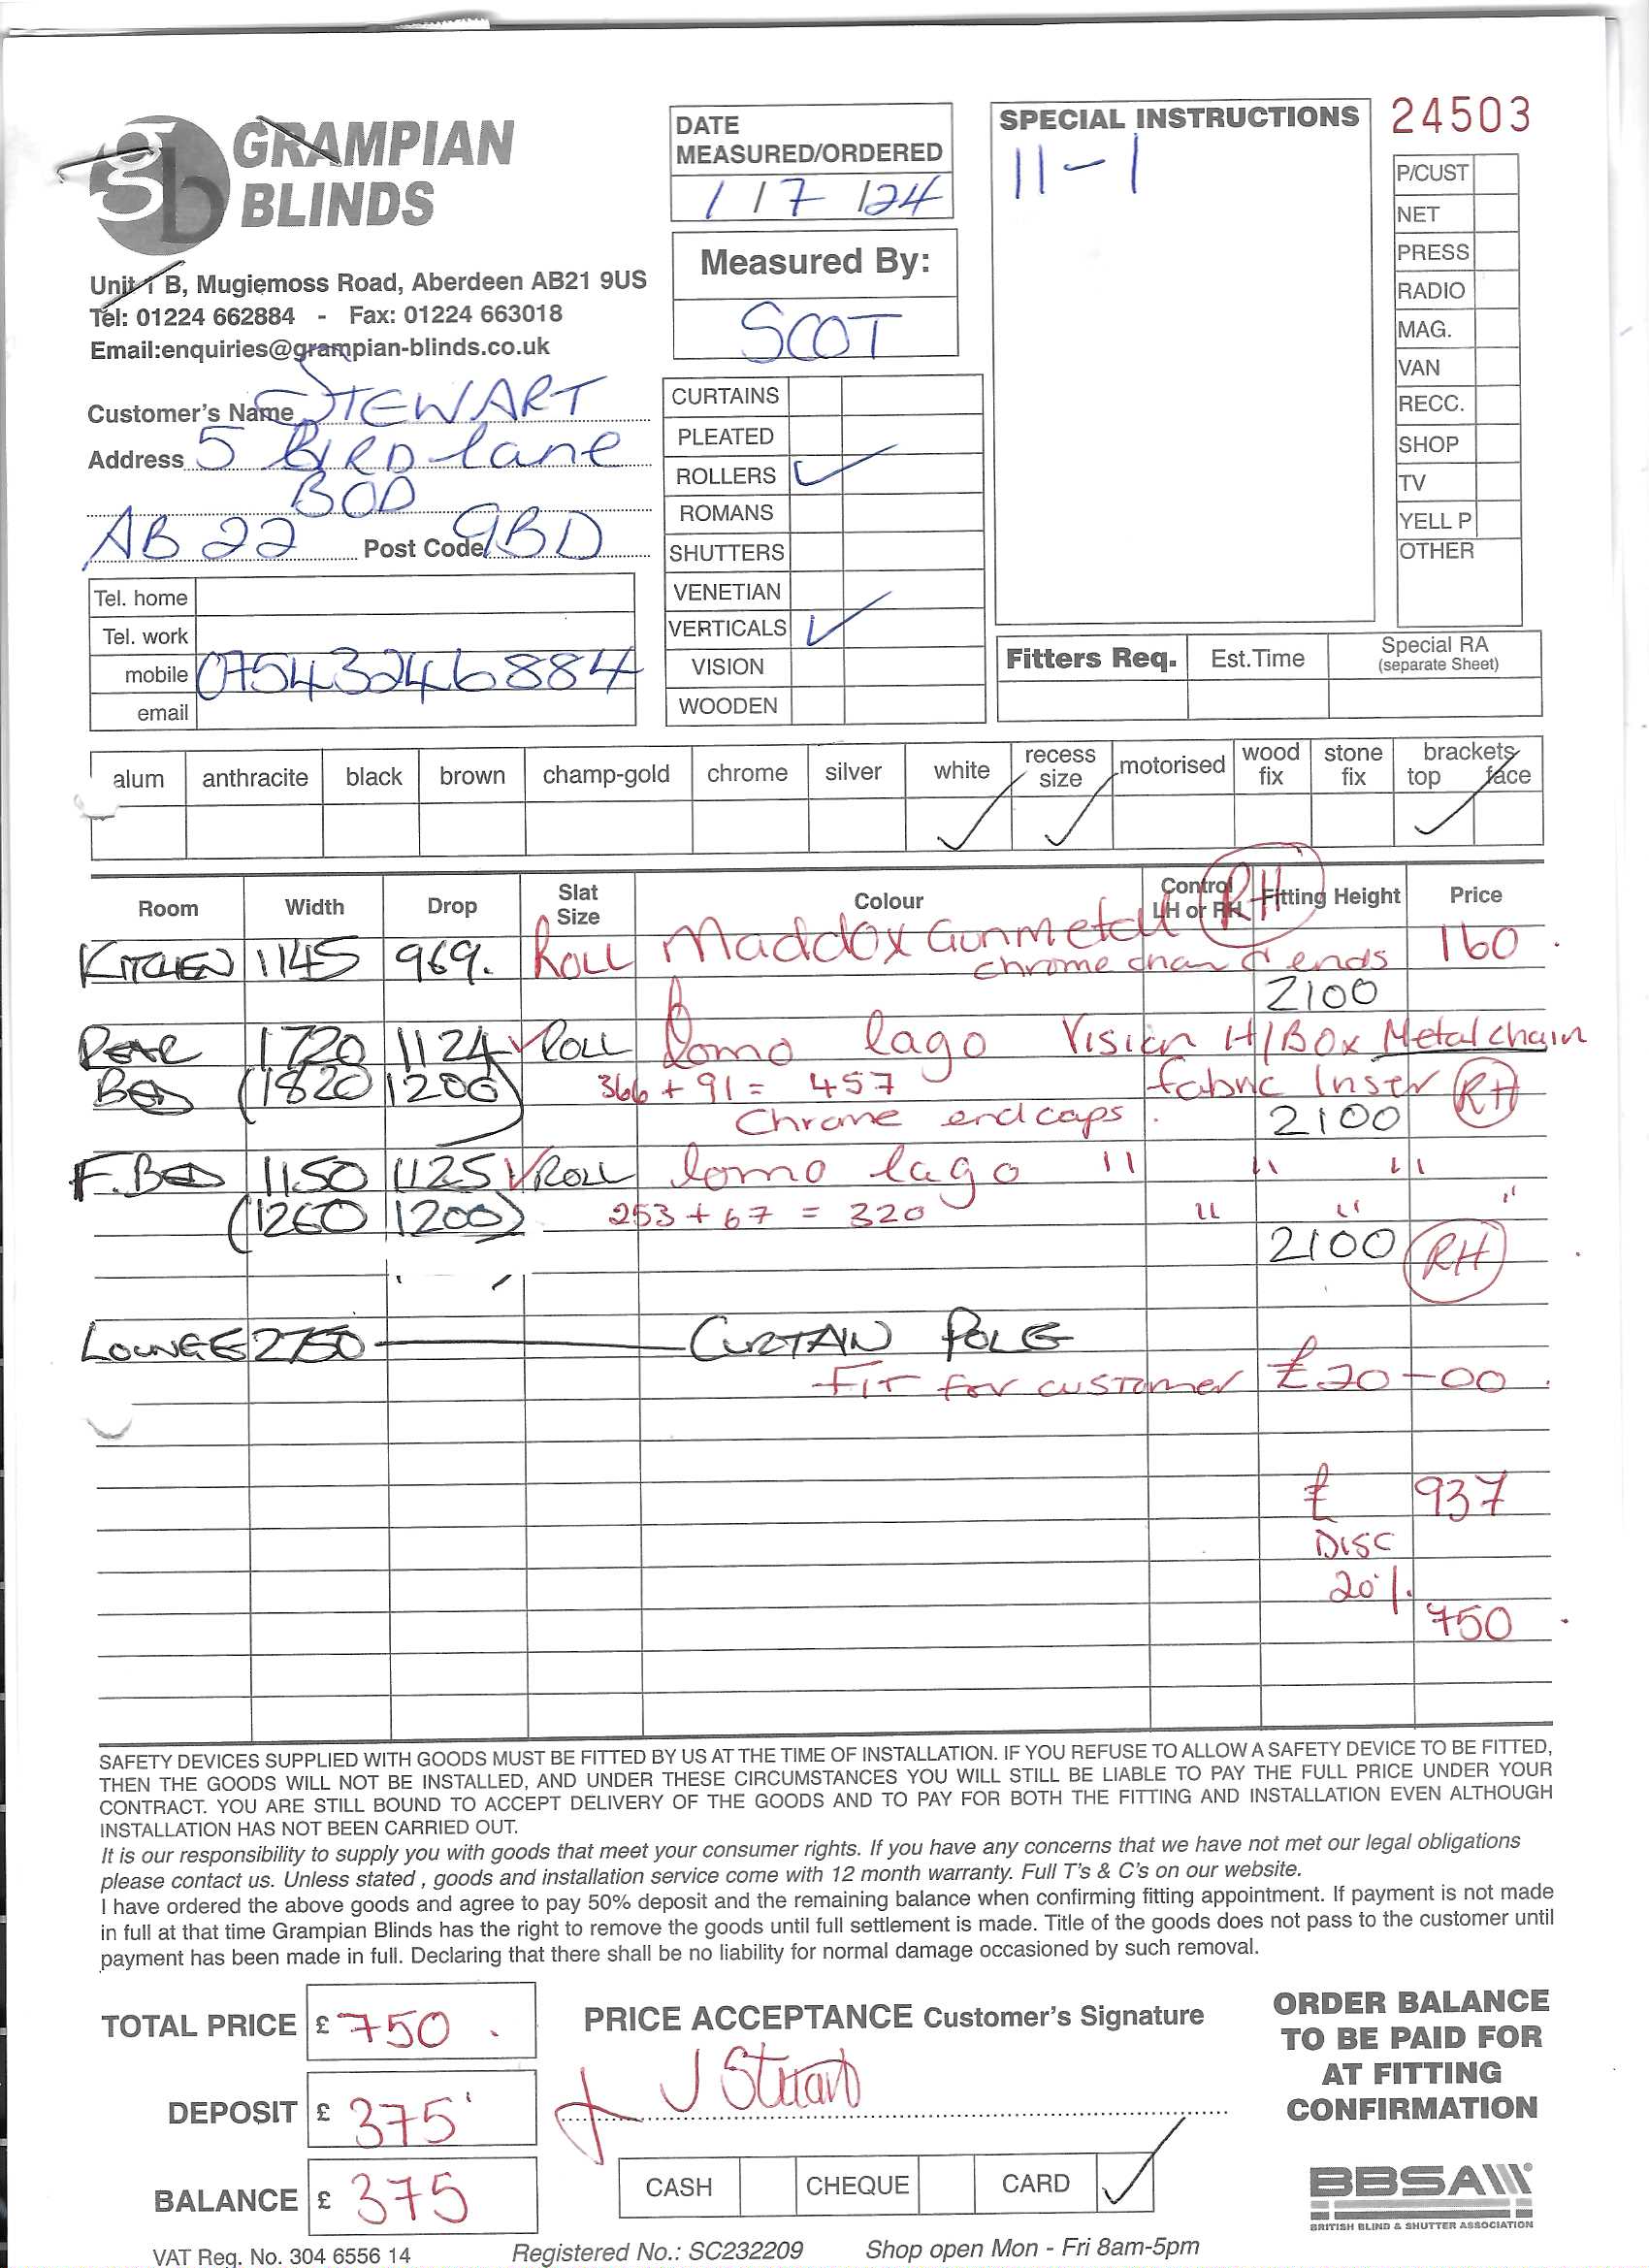 GRAMPIAN
BLINDS
Unit 1 B, Mugiemoss Road, Aberdeen AB21 9US
Tel: 01224 662884 - Fax: 01224 663018
Email:enquiries@grampian-blinds.co.uk
DATE
MEASURED/ORDERED
1/7/24
Measured By:
SCOT
SPECIAL INSTRUCTIONS
11-1
24503
P/CUST
NET
PRESS
RADIO
MAG.
VAN
RECC.
SHOP
TV
YELL P
OTHER
Customer's Name STEWART
Address 5 BIRD lane
BOD
AB22 Post Code 9BD
Tel. home
Tel. work
mobile 07543246884
email
CURTAINS
PLEATED
ROLLERS ✓
ROMANS
SHUTTERS
VENETIAN
VERTICALS ✓
VISION
WOODEN
Fitters Req. Est.Time Special RA
(separate Sheet)
alum anthracite black brown champ-gold chrome silver white recess size motorised wood fix stone fix brackets top face
✓ ✓ ✓
Room Width Drop Slat Size Colour Control LH or RH Fitting Height Price
KITCHEN 1145 969. ROLL Maddox Gunmetal RH 160
chrome chain & ends
2100
REAR 1720 1124 ✓ ROLL lomo lago Vision H/Box Metal chain
BED (1820 1200) 366 + 91 = 457 fabric Inser RH
Chrome endcaps. 2100
F. BED 1150 1125 ✓ ROLL lomo lago " " "
(1260 1200) 253 + 67 = 320 " " "
2100 RH
LOUNGE 2750 CURTAIN POLE
FIT for customer £20-00
£ 937
DISC
20%
750
SAFETY DEVICES SUPPLIED WITH GOODS MUST BE FITTED BY US AT THE TIME OF INSTALLATION. IF YOU REFUSE TO ALLOW A SAFETY DEVICE TO BE FITTED,
THEN THE GOODS WILL NOT BE INSTALLED, AND UNDER THESE CIRCUMSTANCES YOU WILL STILL BE LIABLE TO PAY THE FULL PRICE UNDER YOUR
CONTRACT. YOU ARE STILL BOUND TO ACCEPT DELIVERY OF THE GOODS AND TO PAY FOR BOTH THE FITTING AND INSTALLATION EVEN ALTHOUGH
INSTALLATION HAS NOT BEEN CARRIED OUT.
It is our responsibility to supply you with goods that meet your consumer rights. If you have any concerns that we have not met our legal obligations
please contact us. Unless stated , goods and installation service come with 12 month warranty. Full T's & C's on our website.
I have ordered the above goods and agree to pay 50% deposit and the remaining balance when confirming fitting appointment. If payment is not made
in full at that time Grampian Blinds has the right to remove the goods until full settlement is made. Title of the goods does not pass to the customer until
payment has been made in full. Declaring that there shall be no liability for normal damage occasioned by such removal.
TOTAL PRICE £ 750
DEPOSIT £ 375
BALANCE £ 375
PRICE ACCEPTANCE Customer's Signature
J Stewart
CASH CHEQUE CARD ✓
ORDER BALANCE
TO BE PAID FOR
AT FITTING
CONFIRMATION
BBSA
BRITISH BLIND & SHUTTER ASSOCIATION
VAT Reg. No. 304 6556 14 Registered No.: SC232209 Shop open Mon - Fri 8am-5pm